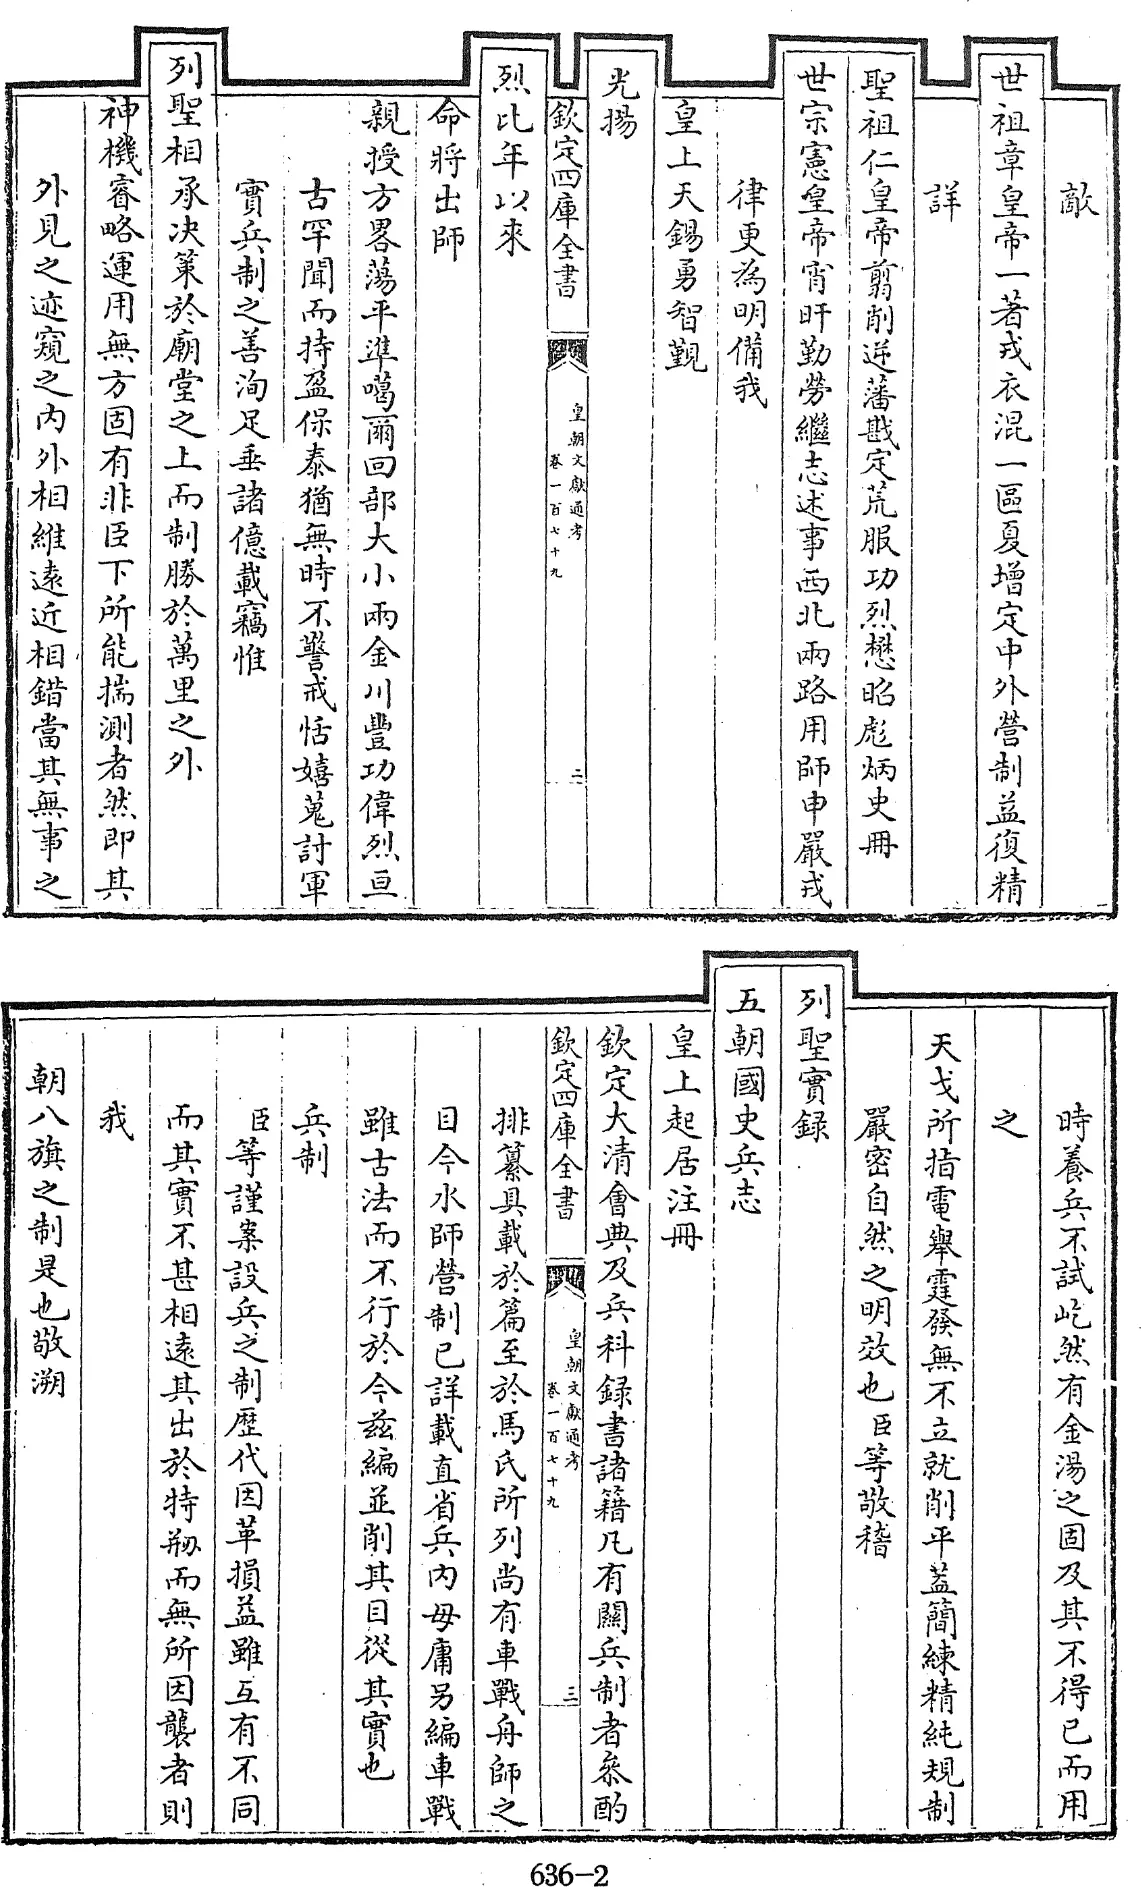 敵
世祖章皇帝一著戎衣混一區夏增定中外營制益復精
詳
聖祖仁皇帝翦削逆藩戡定荒服功烈懋昭彪炳史冊
世宗憲皇帝宵旰勤勞繼志述事西北兩路用師申嚴戎
律更為明備我
皇上天錫勇智覲
光揚
欽定四庫全書
皇朝文獻通考
卷一百七十九
二
烈比年以來
命將出師
親授方畧蕩平準噶爾回部大小兩金川豐功偉烈亘
古罕聞而持盈保泰猶無時不警戒恬嬉蒐討軍
實兵制之善洵足垂諸億載竊惟
列聖相承决策於廟堂之上而制勝於萬里之外
神機睿略運用無方固有非臣下所能揣測者然即其
外見之迹窺之内外相維遠近相錯當其無事之
時養兵不試屹然有金湯之固及其不得已而用
之
天戈所指電舉霆發無不立就削平蓋簡練精純規制
嚴密自然之明效也臣等敬稽
列聖實録
五朝國史兵志
皇上起居注冊
欽定大清會典及兵科録書諸籍凡有關兵制者叅酌
欽定四庫全書
皇朝文獻通考
卷一百七十九
三
排纂具載於篇至於馬氏所列尚有車戰舟師之
目今水師營制已詳載直省兵内毋庸另編車戰
雖古法而不行於今兹編並削其目從其實也
兵制
臣等謹案設兵之制歴代因革損益雖互有不同
而其實不甚相遠其出於特剏而無所因襲者則
我
朝八旗之制是也敬溯
636-2